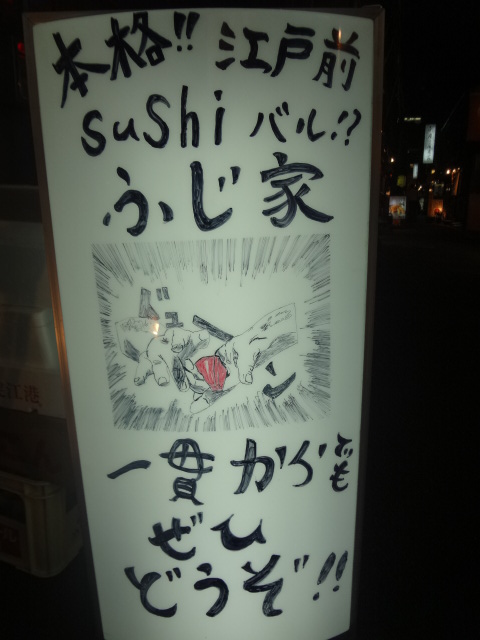 本格!! 江戸前
sushi バル!?
ふじ家
ギューン
一貫からでも
ぜひ
どうぞ!!
江港